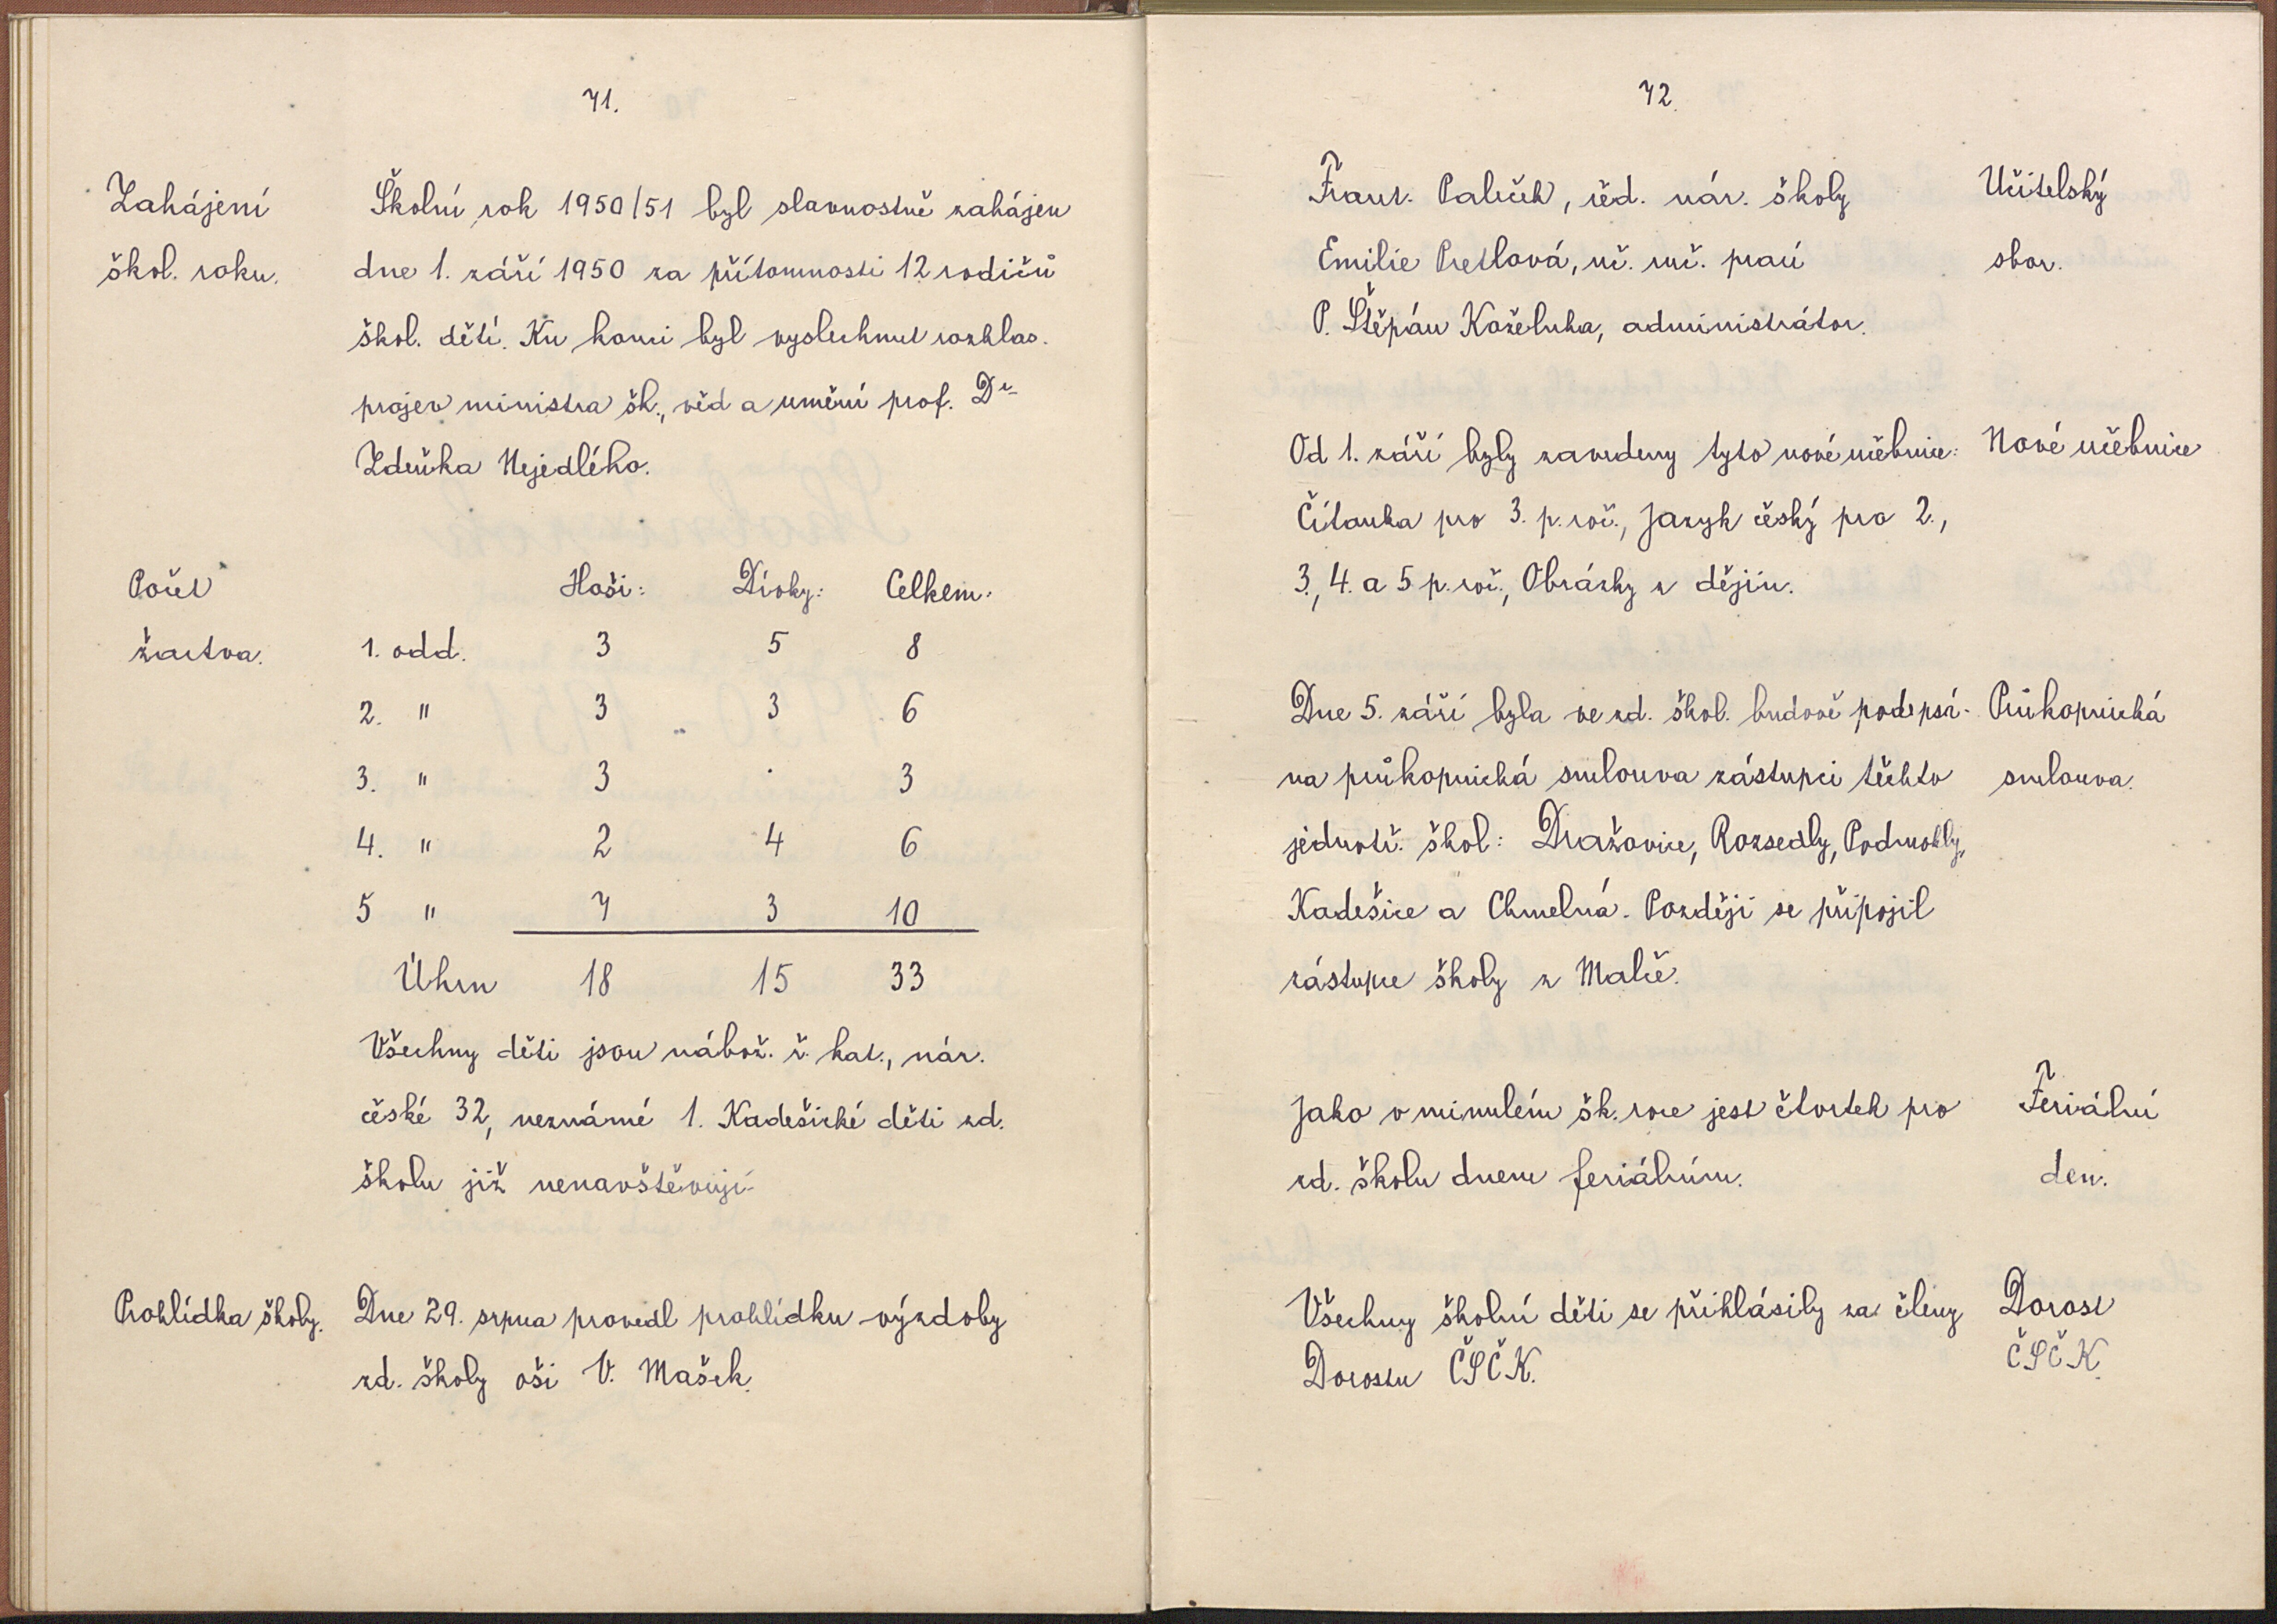 71.
Zahájení
škol. roku.
Školní rok 1950/51 byl slavnostně zahájen
dne 1. září 1950 za přítomnosti 12 rodičů
škol. dětí. Ku konci byl vyslechnut rozhlas.
projev ministra šk., věd a umění prof. Dr
Zdeňka Nejedlého.
Počet
žactva.
Hoši: Dívky: Celkem:
1. odd. 3 5 8
2. " 3 3 6
3. " 3 . 3
4. " 2 4 6
5 " 7 3 10
Úhrn 18 15 33
Všechny děti jsou nábož. ř. kat., nár.
české 32, neznámé 1. Kadešické děti zd.
školu již nenavštěvují.
Prohlídka školy.
Dne 29. srpna provedl prohlídku výzdoby
zd. školy oši V. Mašek.
72.
Frant. Paleček, řéd. nár. školy
Emilie Pretlová, uč. ruč. prací
P. Štěpán Koželuha, administrátor.
Učitelský
sbor.
Od 1. září byly zavedeny tyto nové učebnice:
Čítanka pro 3. p. roč., Jazyk český pro 2.,
3., 4. a 5 p. roč., Obrázky z dějin.
Nové učebnice
Dne 5. září byla ve zd. škol. budově podepsá-
na průkopnická smlouva zástupci těchto
jednotř. škol: Dražovice, Rozsedly, Podmokly,
Kadešice a Chmelná. Později se připojil
zástupce školy z Malče.
Průkopnická
smlouva.
Jako v minulém šk. roce jest čtvrtek pro
zd. školu dnem feriálním.
Feriální
den.
Všechny školní děti se přihlásily za členy
Dorostu ČSČK.
Dorost
ČSČK.